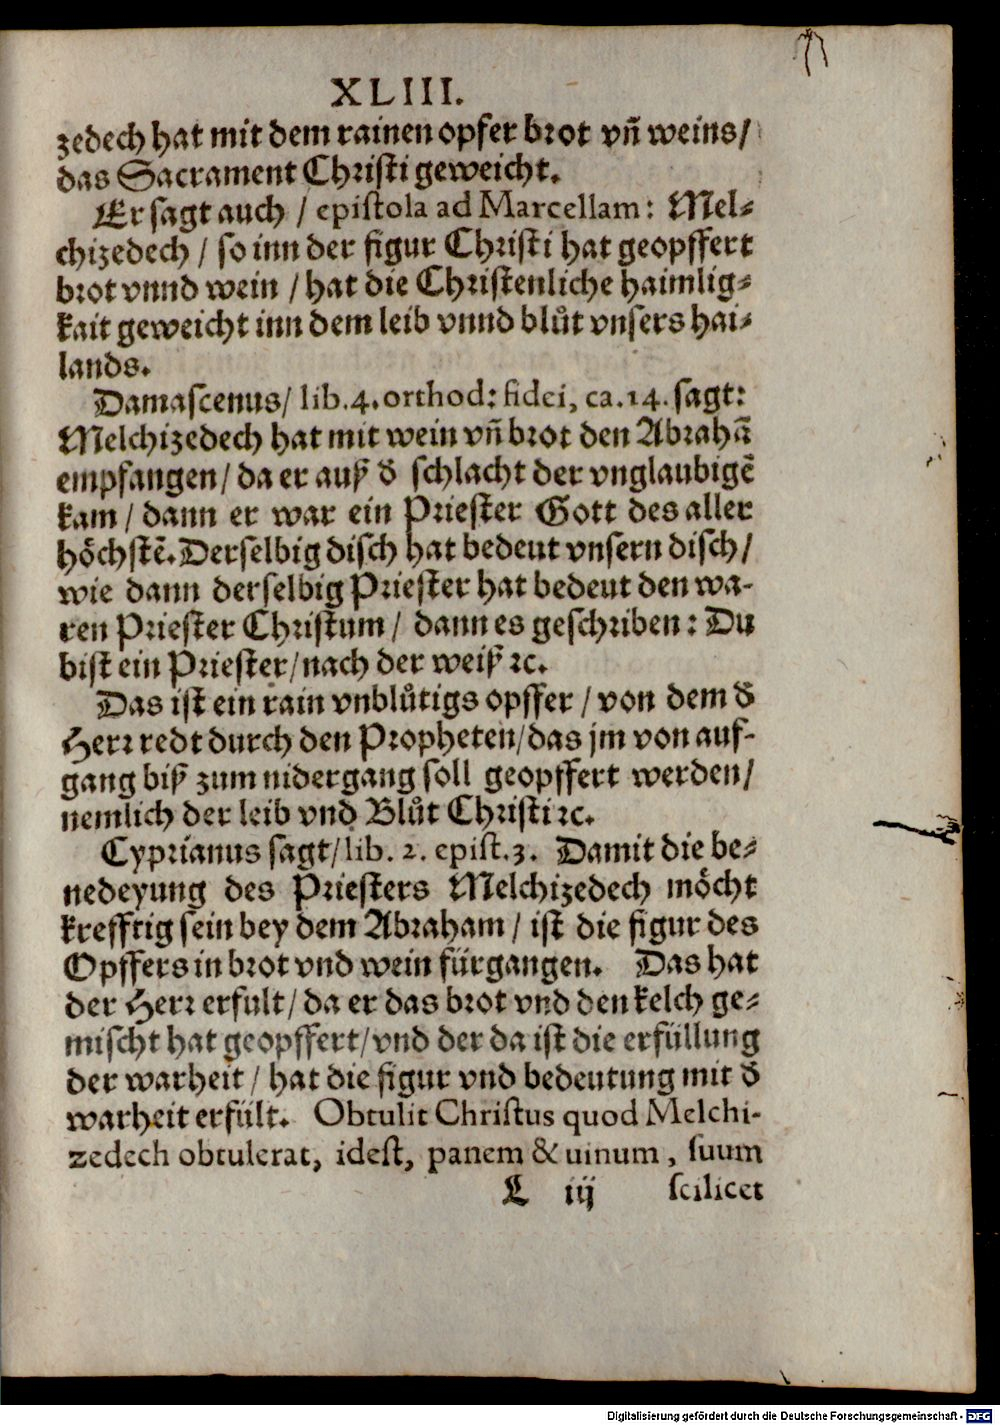 XLIII.
zedech hat mit dem rainen opfer brot vñ weins/
das Sacrament Christi geweicht.
Er sagt auch / epistola ad Marcellam: Mel-
chizedech / so inn der figur Christi hat geopffert
brot vnnd wein / hat die Christenliche haimlig-
kait geweicht inn dem leib vnnd blůt vnsers hai-
lands.
Damascenus/ lib.4.orthod: fidei, ca.14. sagt:
Melchizedech hat mit wein vñ brot den Abrahã
empfangen/ da er auß d̃ schlacht der vnglaubigẽ
kam / dann er war ein Priester Gott des aller
hôchstẽ. Derselbig disch hat bedeut vnsern disch/
wie dann derselbig Priester hat bedeut den wa-
ren Priester Christum / dann es geschriben: Du
bist ein Priester/nach der weiß ꝛc.
Das ist ein rain vnblůtigs opffer / von dem d̃
Herr redt durch den Propheten/das jm von auf-
gang biß zum nidergang soll geopffert werden/
nemlich der leib vnd Blůt Christi ꝛc.
Cyprianus sagt/lib. 2. epist.3. Damit die be-
nedeyung des Priesters Melchizedech môcht
krefftig sein bey dem Abraham / ist die figur des
Opffers in brot vnd wein fürgangen. Das hat
der Herr erfult/ da er das brot vnd den kelch ge-
mischt hat geopffert/vnd der da ist die erfüllung
der warheit / hat die figur vnd bedeutung mit d̃
warheit erfült. Obtulit Christus quod Melchi-
zedech obtulerat, idest, panem & uinum, suum
L iij scilicet
Digitalisierung gefördert durch die Deutsche Forschungsgemeinschaft - DFG